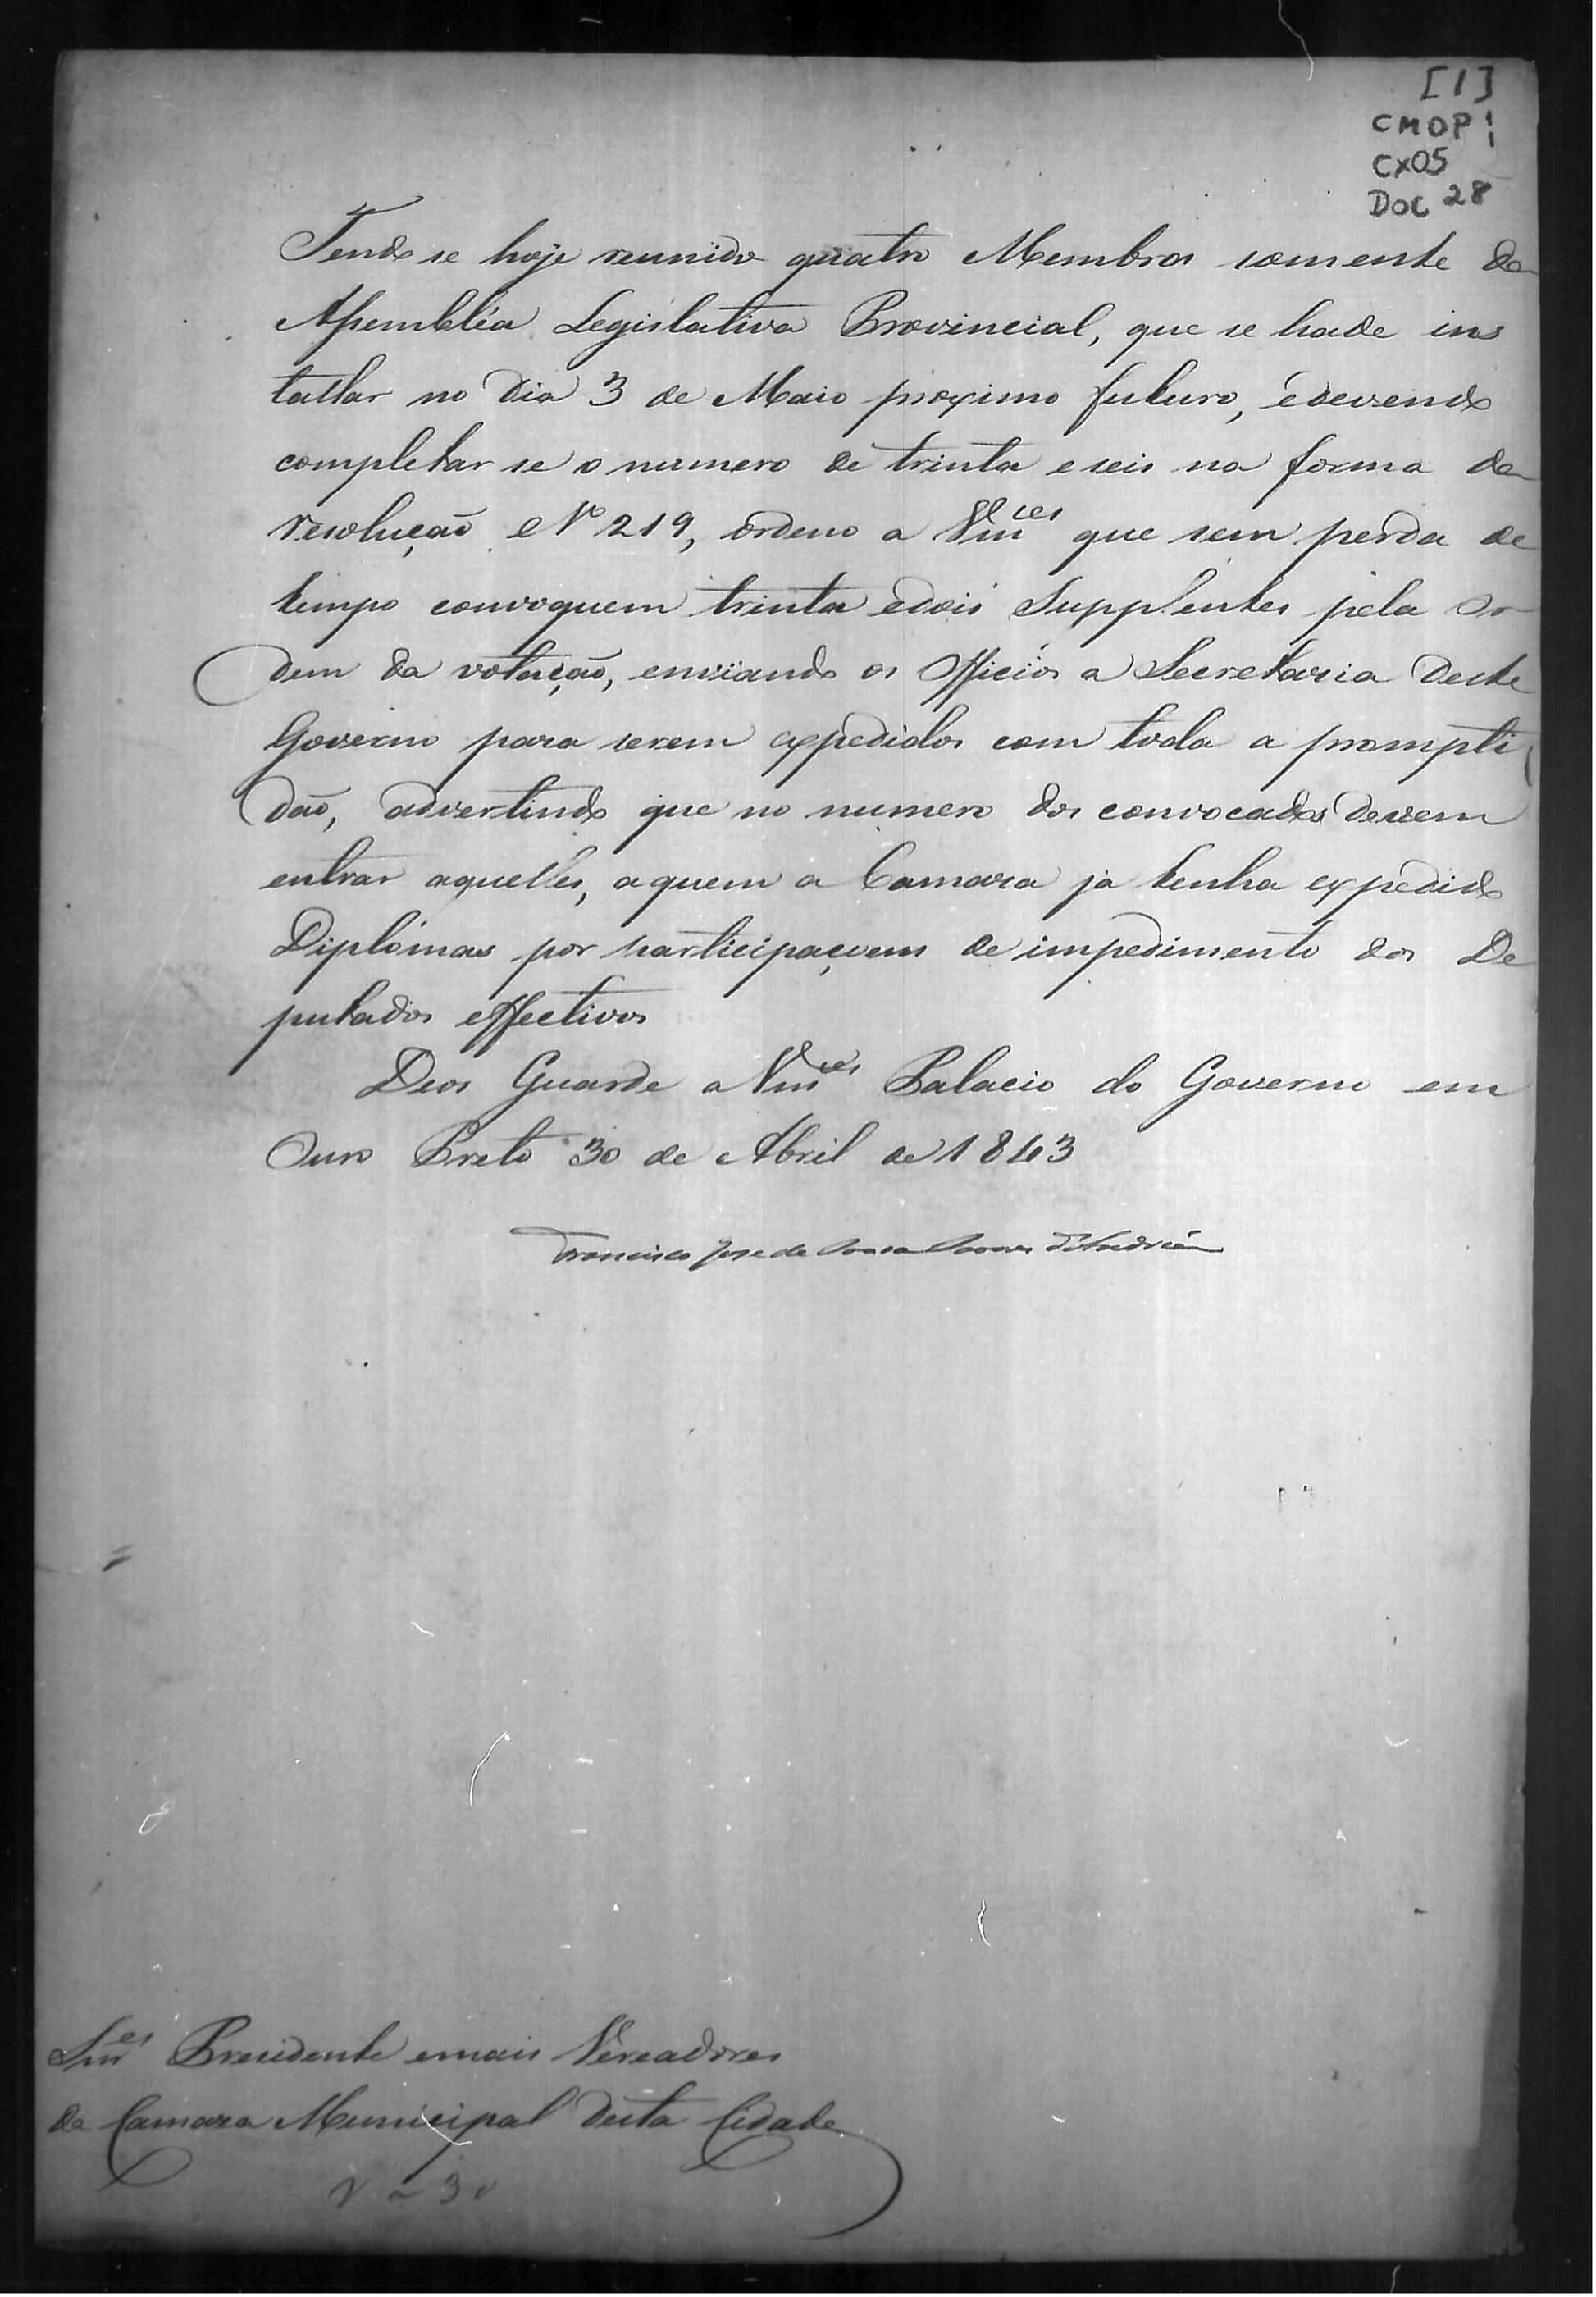 [1]
CMOP
CX05
DOC 28
Tendo se hoje reunido quatro Membros somente da
Assembléa Legislativa Provincial, que se hade ins
tallar no dia 3 de Maio proximo futuro, e devendo
completar se o numero de trinta e seis na forma da
resolução Nº 219, ordeno a Vm.ces que sem perda de
tempo convoquem trinta e dois Supplentes pela Or
dem da votação, enviando os Officios a Secretaria deste
Governo para serem expedidos com toda a prompti
dão, advertindo que no numero dos convocados devem
entrar aquelles, a quem a Camara ja tenha expedido
Diplomas por participaçoens de impedimento dos De
putados effectivos
Deos Guarde a Vm.ces Palacio do Governo em
Ouro Preto 30 de Abril de 1843
Francisco Jose de Sousa Soares d'Andréa
Snr.es Presidente e mais Vereadores
da Camara Municipal desta Cidade